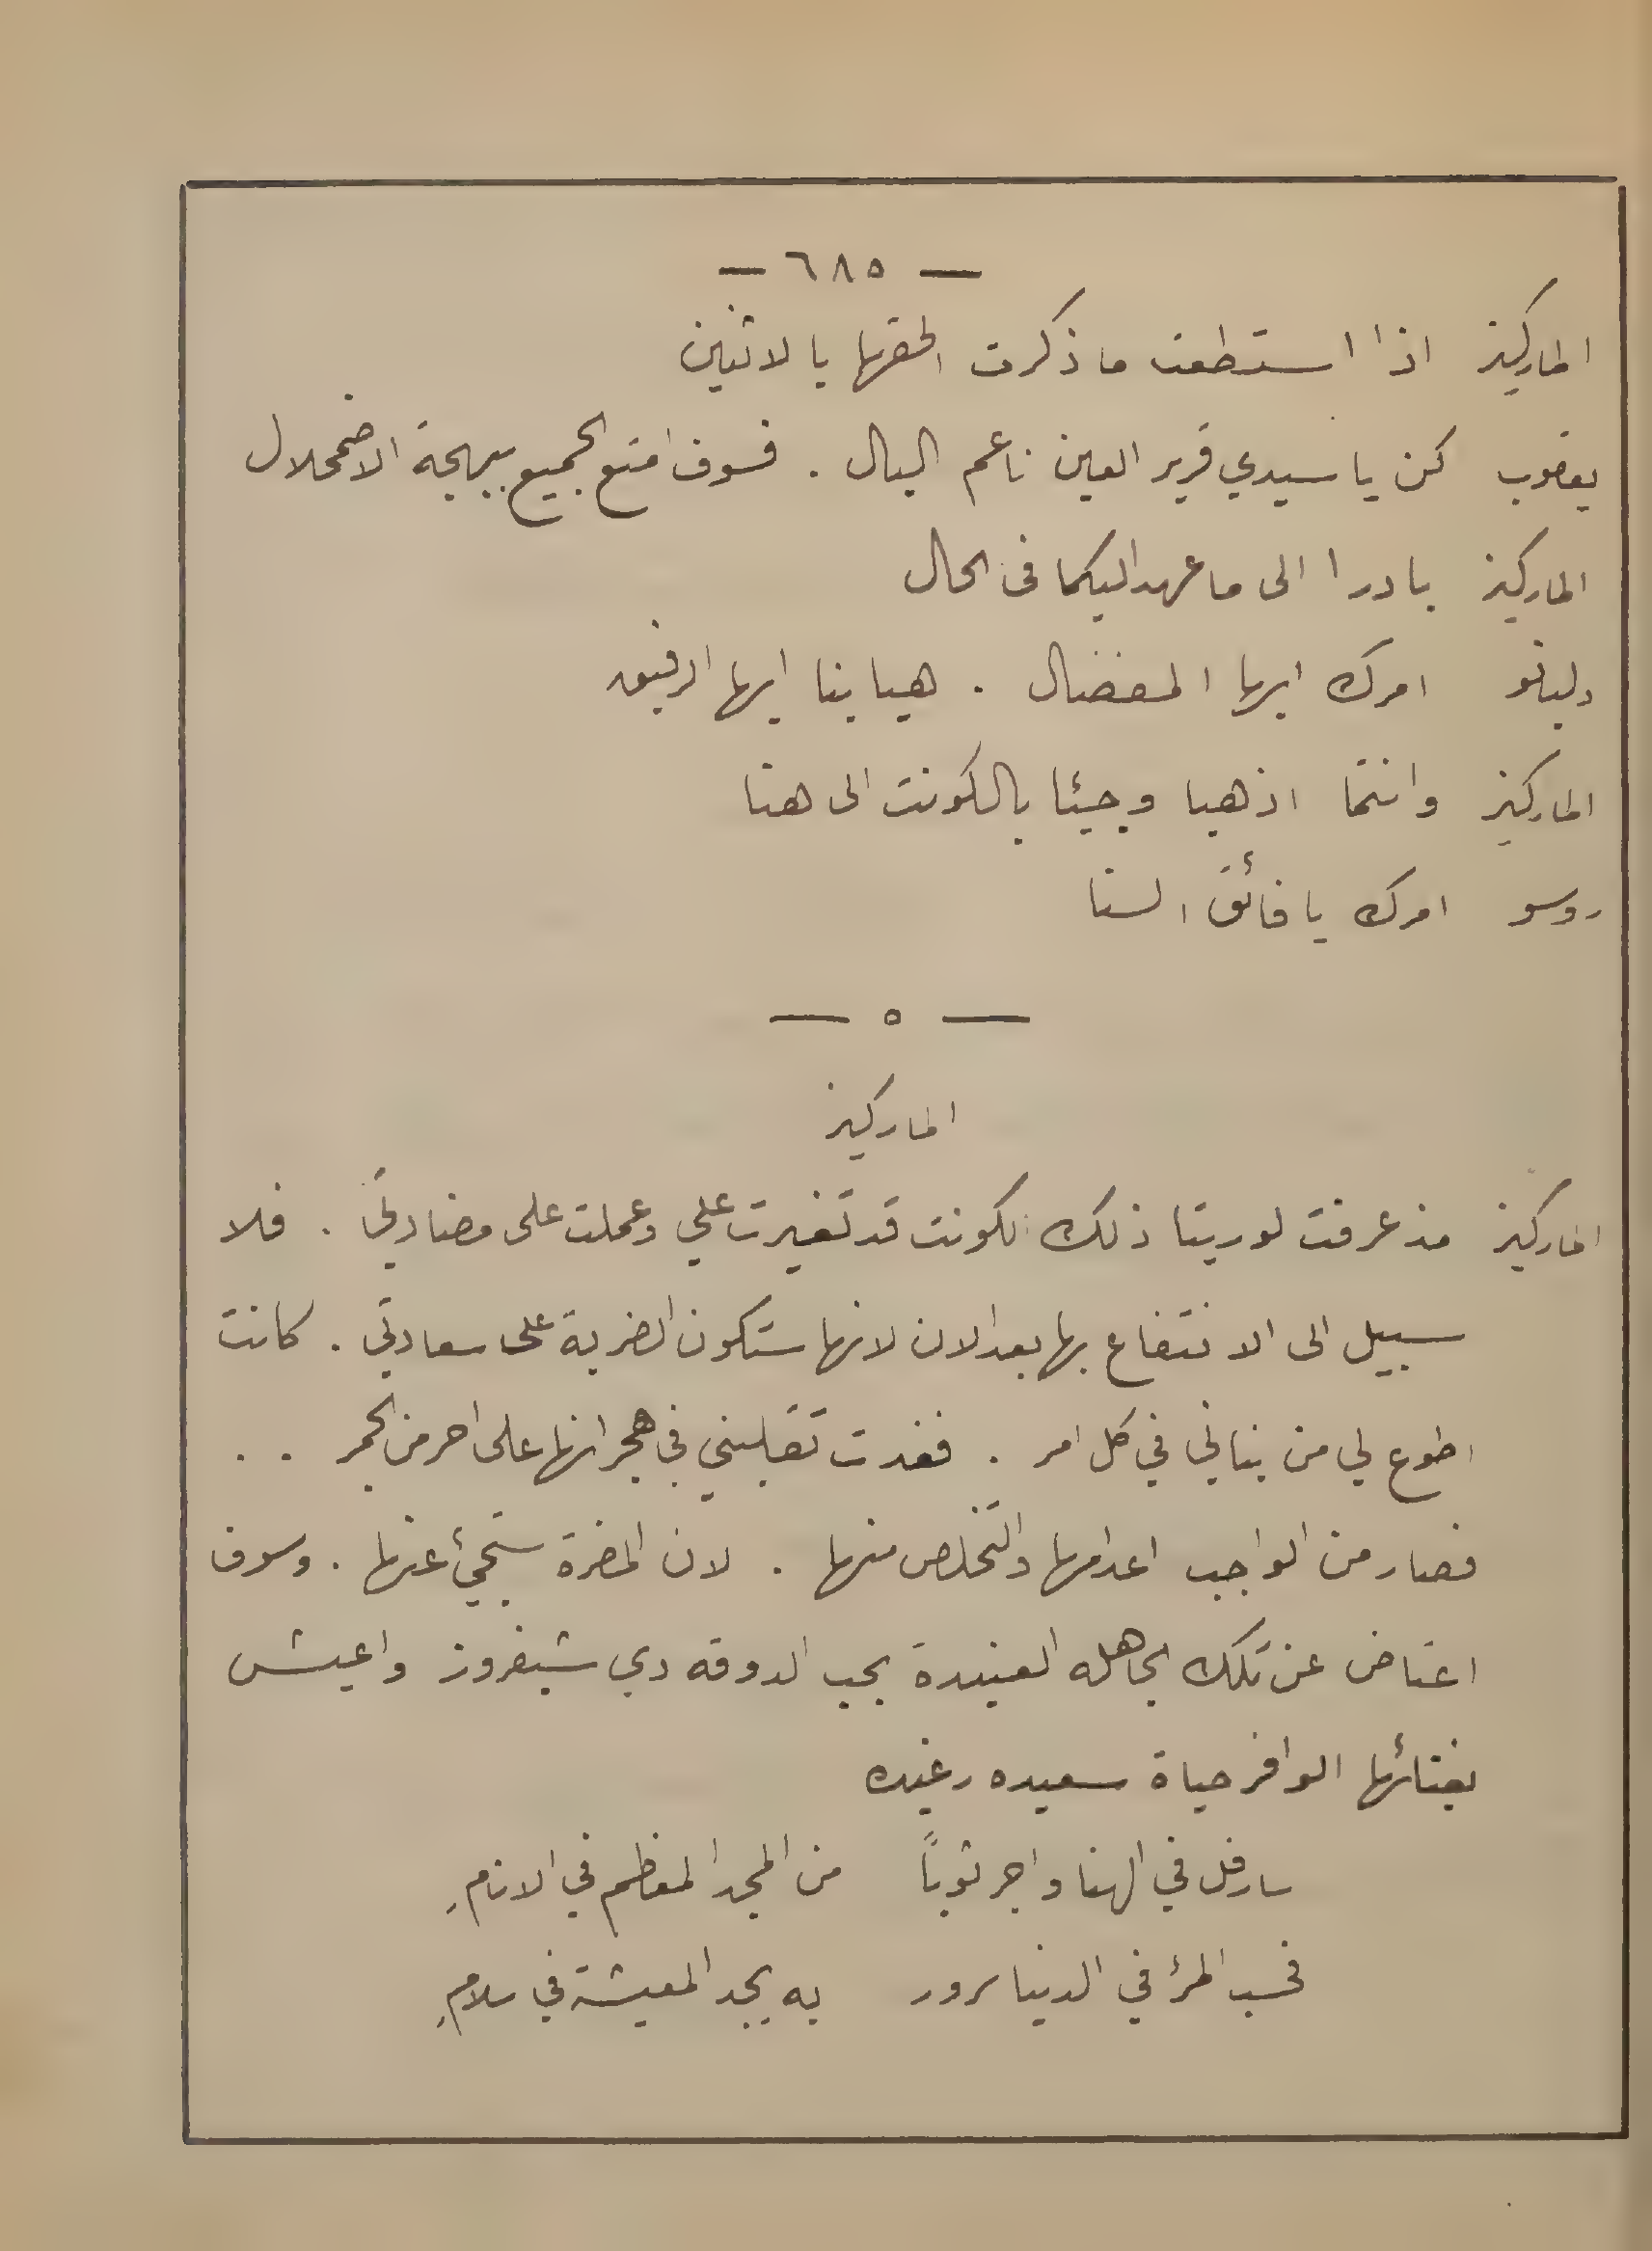 — ٦٨٥ —
الماركيز اذا استطعت ما ذكرت الحقها بالاثنين
يعقوب كن يا سيدي قرير العين ناعم البال . فسوف امتع الجميع ببهجة الاضمحلال
الماركيز بادرا الى ما عهد اليكما فى الحال
امرك ايها المفضال . هيا بنا ايها الرفيق
الماركيز وانتما اذهبا وجيئا بالكونت الى هنا
روسو امرك يا فائق السنا
— ٥ —
الماركيز
الماركيز مذ عرفت لوريتا ذلك الكونت قد تغيرت علي وعملت على مضادتي . فلا
سبيل الى الانتفاع بها بعد الان لانها ستكون الضربة على سعادتي . كانت
اطوع لي من بناني في كل امر . فغدت تقلبني في هجرانها على احر من الجمر . .
فصار من الواجب اعدامها والتخلص منها . لان المضرة ستجيئ عنها . وسوف
اعتاض عن تلك الجاهله العنيدة بحب الدوقه دي شيفروز واعيش
بغنائها الوافر حياة سعيده رغيده
سارفل في الهنا واجر ثوباً من المجد المعظم في الانامِ
فحسب المرئ في الدنيا سرور به يجد المعيشة في سلامِ